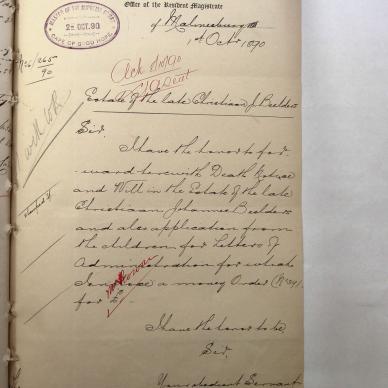 Office of the Resident Magistrate
of Malmesbury
1st Octr 1890
MASTER OF THE SUPREME COURT
2- OCT. 90
CAPE OF GOOD HOPE
/90
Estate of the late Christiaan J. Beelders
Sir,
I have the honor to for-
-ward herewith Death Notice
and Will in the Estate of the late
Christiaan Johannes Beelders
and also application from
the children for Letters of
Administration for which
I enclose a money Order
for
I have the honor to be
Sir,
Your obedient Servant